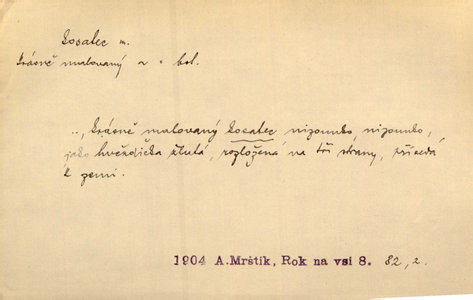 kosatec m.
krásně malovaný ~ * bot.
.., krásně malovaný kosatec nizounko, nizounko,
jako hvězdička žlutá, rozložená na tři strany, přisedá
k zemi.
1904 A.Mrštík, Rok na vsi 8. 82, 2.